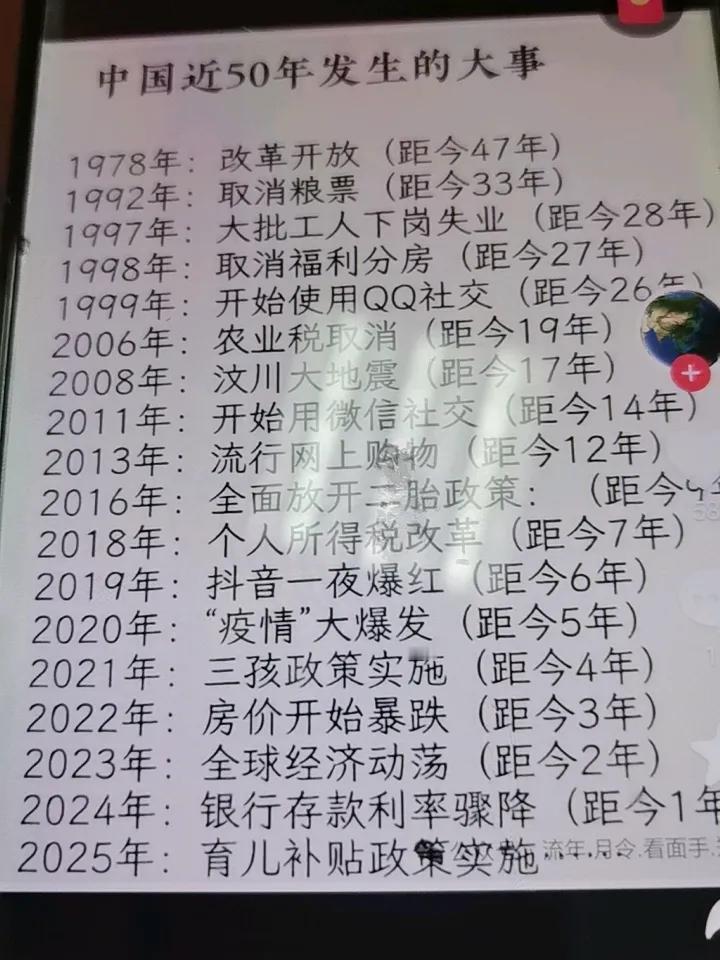 中国近50年发生的大事
1978年：改革开放（距今47年）
1992年：取消粮票（距今33年）
1997年：大批工人下岗失业（距今28年）
1998年：取消福利分房（距今27年）
1999年：开始使用QQ社交（距今26年）
2006年：农业税取消（距今19年）
2008年：汶川大地震（距今17年）
2011年：开始用微信社交（距今14年）
2013年：流行网上购物（距今12年）
2016年：全面放开二胎政策：（距今9年
2018年：个人所得税改革（距今7年）
2019年：抖音一夜爆红（距今6年）
2020年：“疫情”大爆发（距今5年）
2021年：三孩政策实施（距今4年）
2022年：房价开始暴跌（距今3年）
2023年：全球经济动荡（距今2年）
2024年：银行存款利率骤降（距今1年
2025年：育儿补贴政策实施……
流年.月令.看面手.